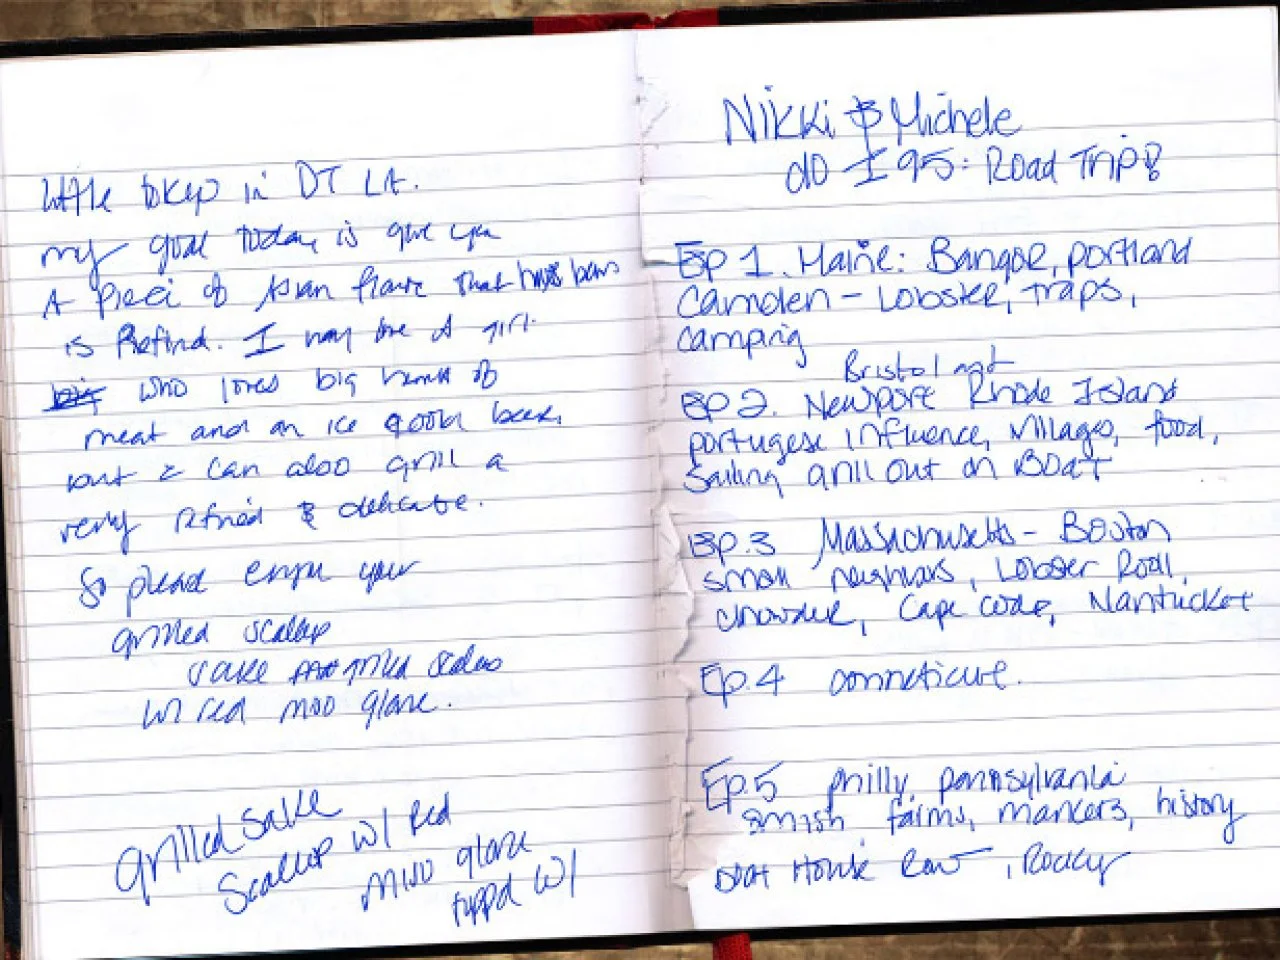 little tokyo in DT LA.
my goal today is give you
A piece of Asian flare that
is Refind. I may be A girl
who loves big hunks of
meat and an ice cold beer,
but I can also grill a
very refined & delicate.
So please enjoy your
grilled scallop
sake grilled scallop
w/ red miso glaze.
Grilled Sake
Scallop w/ Red
miso glaze
topped w/
Nikki & Michele
do I 95: Road Trip
Ep 1. Maine: Bangor, portland
Camden - Lobster, traps,
camping
Bristol
Ep 2. Newport Rhode Island
portugese influence, villages, food,
sailing grill out on Boat
Ep.3 Massachusetts - Boston
small, Lobster Roll,
chowder, Cape Code, Nantucket
Ep.4 Conneticut.
Ep.5 philly, pennsylvania
farms, markers, history
Boat House Row, Rocky